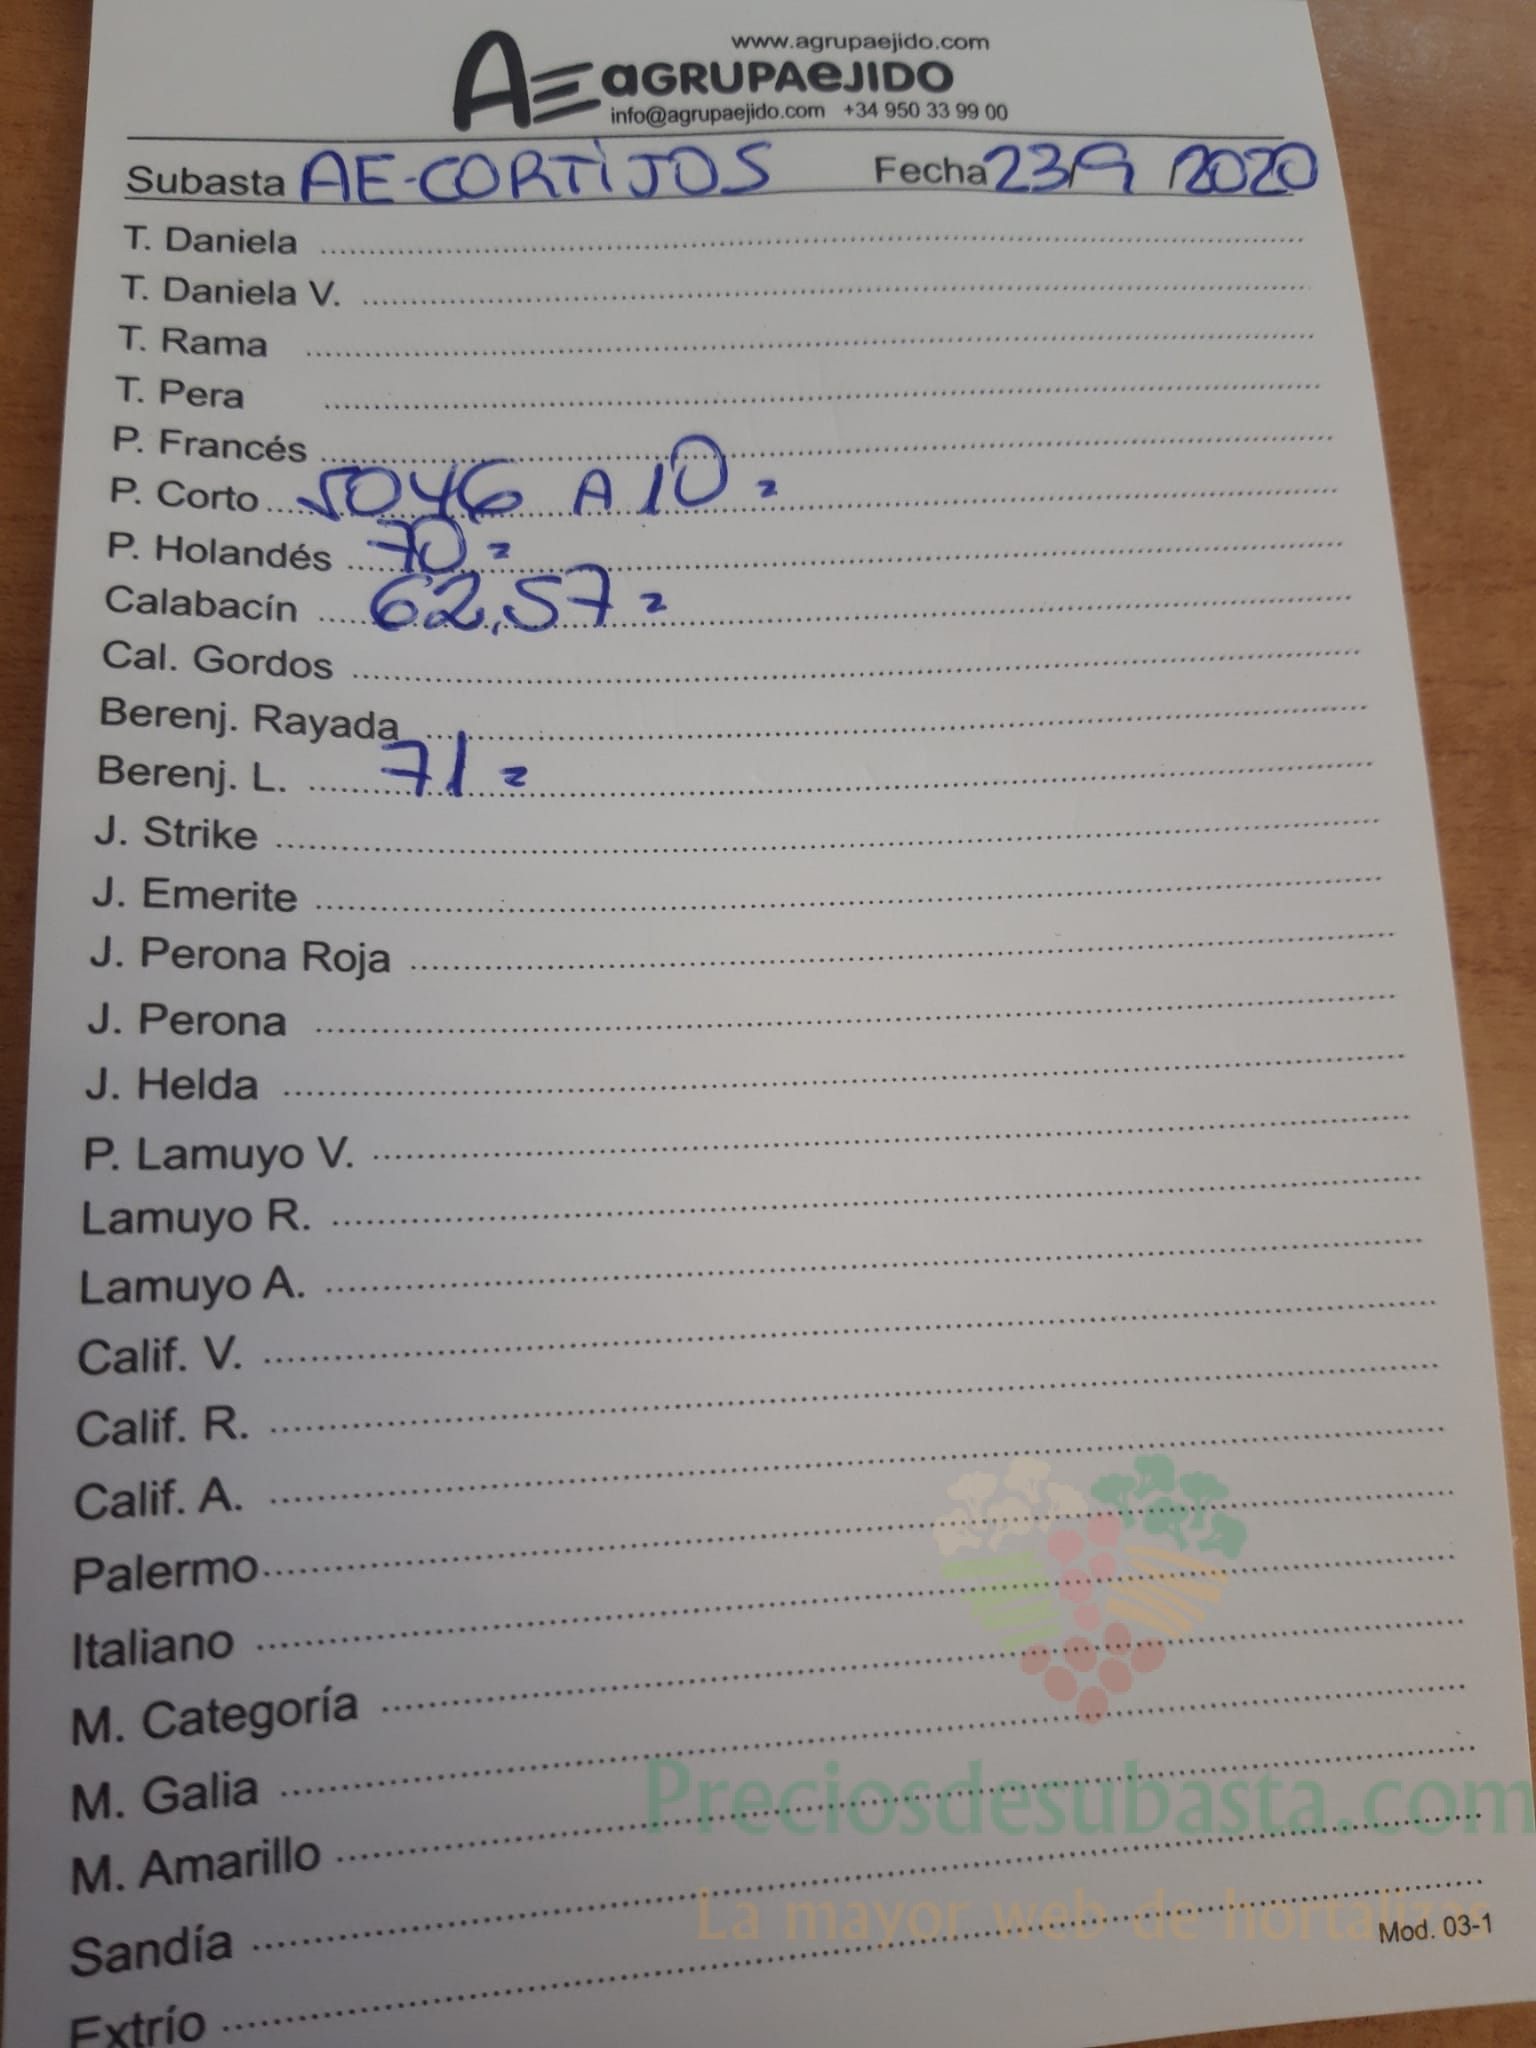 www.agrupaejido.com
AE aGRUPAeJIDO
info@agrupaejido.com +34 950 33 99 00
Subasta AE-CORTIJOS Fecha 23/9/2020
T. Daniela
T. Daniela V.
T. Rama
T. Pera
P. Francés
P. Corto 5046 A 10 =
P. Holandés 70 =
Calabacín 62,57 =
Cal. Gordos
Berenj. Rayada
Berenj. L. 71 =
J. Strike
J. Emerite
J. Perona Roja
J. Perona
J. Helda
P. Lamuyo V.
Lamuyo R.
Lamuyo A.
Calif. V.
Calif. R.
Calif. A.
Palermo
Italiano
M. Categoría
M. Galia
M. Amarillo
Sandía
Extrío
Preciosdesubasta.com
La mayor web de hortalizas
Mod. 03-1